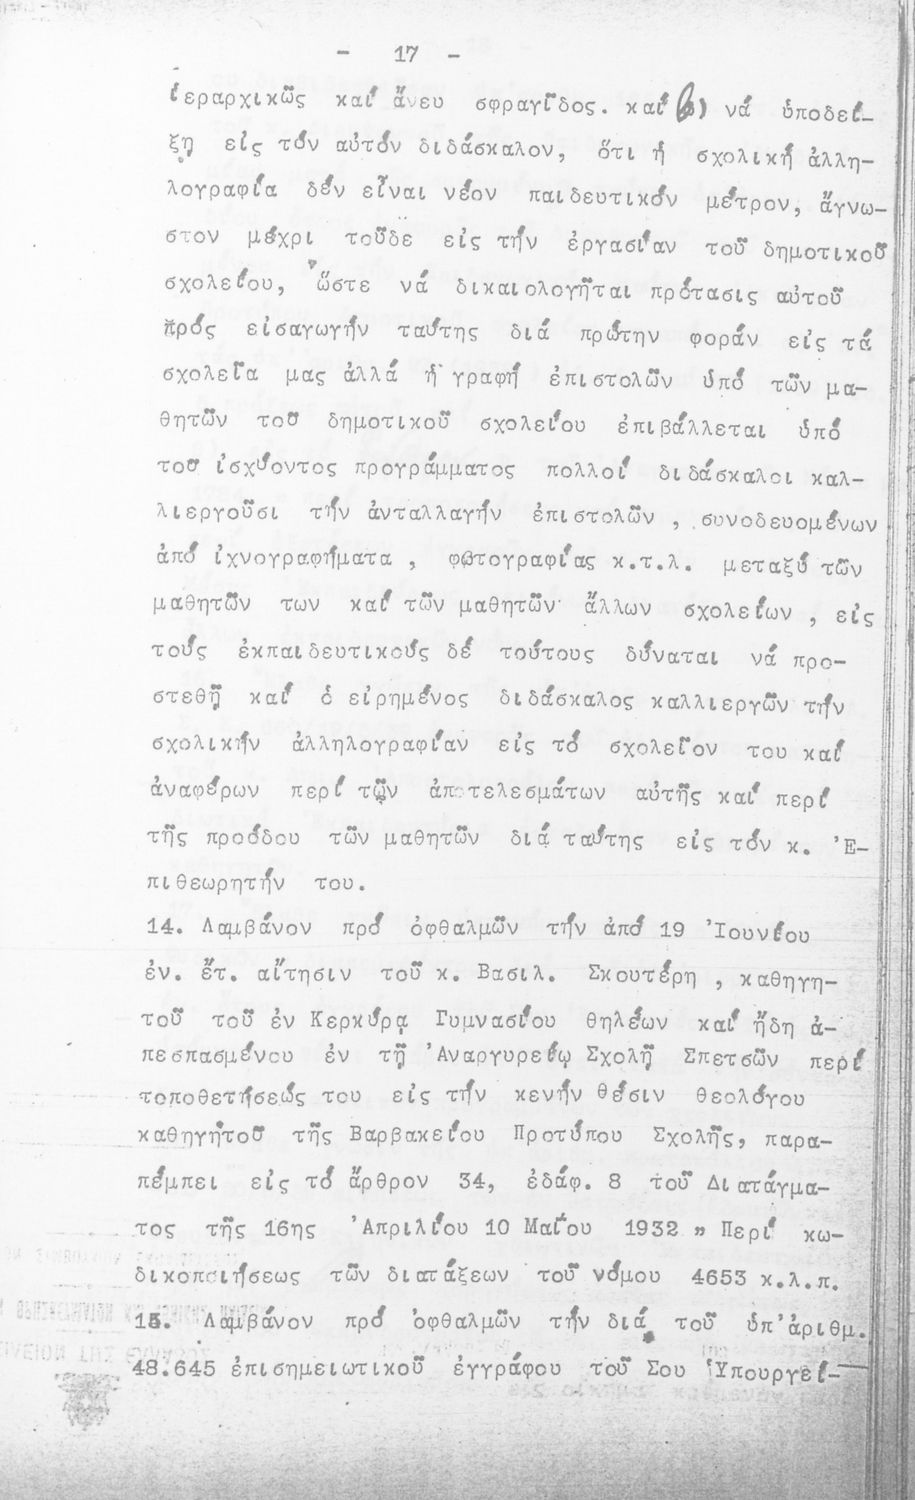 - 17 -
ἱεραρχικῶς καί ἄνευ σφραγῖδος. καί β) νά ὑποδεί-
ξῃ εἰς τόν αὐτόν διδάσκαλον, ὅτι ἡ σχολική ἀλλη-
λογραφία δέν εἶναι νέον παιδευτικόν μέτρον, ἄγνω-
στον μέχρι τοῦδε εἰς τήν ἐργασίαν τοῦ δημοτικοῦ
σχολείου, ὥστε νά δικαιολογῆται πρότασις αὐτοῦ
πρός εἰσαγωγήν ταύτης διά πρώτην φοράν εἰς τά
σχολεῖα μας ἀλλά ἡ γραφή ἐπιστολῶν ὑπό τῶν μα-
θητῶν τοῦ δημοτικοῦ σχολείου ἐπιβάλλεται ὑπό
τοῦ ἰσχύοντος προγράμματος πολλοί διδάσκαλοι καλ-
λιεργοῦσι τήν ἀνταλλαγήν ἐπιστολῶν , συνοδευομένων
ἀπό ἰχνογραφήματα , φωτογραφίας κ.τ.λ. μεταξύ τῶν
μαθητῶν των καί τῶν μαθητῶν ἄλλων σχολείων , εἰς
τούς ἐκπαιδευτικούς δέ τούτους δύναται νά προ-
στεθῇ καί ὁ εἰρημένος διδάσκαλος καλλιεργῶν τήν
σχολικήν ἀλληλογραφίαν εἰς τό σχολεῖον του καί
ἀναφέρων περί τῶν ἀποτελεσμάτων αὐτῆς καί περί
τῆς προόδου τῶν μαθητῶν διά ταύτης εἰς τόν κ. Ἐ-
πιθεωρητήν του.
14. Λαμβάνον πρό ὀφθαλμῶν τήν ἀπό 19 Ἰουνίου
ἐν. ἔτ. αἴτησιν τοῦ κ. Βασιλ. Σκουτέρη , καθηγη-
τοῦ τοῦ ἐν Κερκύρᾳ Γυμνασίου θηλέων καί ἤδη ἀ-
πεσπασμένου ἐν τῇ Ἀναργυρείῳ Σχολῇ Σπετσῶν περί
τοποθετήσεώς του εἰς τήν κενήν θέσιν θεολόγου
καθηγητοῦ τῆς Βαρβακείου Προτύπου Σχολῆς, παρα-
πέμπει εἰς τό ἄρθρον 34, ἐδάφ. 8 τοῦ Διατάγμα-
τος τῆς 16ης Ἀπριλίου 10 Μαΐου 1932 " Περί κω-
δικοποιήσεως τῶν διατάξεων τοῦ νόμου 4653 κ.λ.π.
15. Λαμβάνον πρό ὀφθαλμῶν τήν διά τοῦ ὑπ' ἀριθμ.
48.645 ἐπισημειωτικοῦ ἐγγράφου τοῦ Σου Ὑπουργεί-